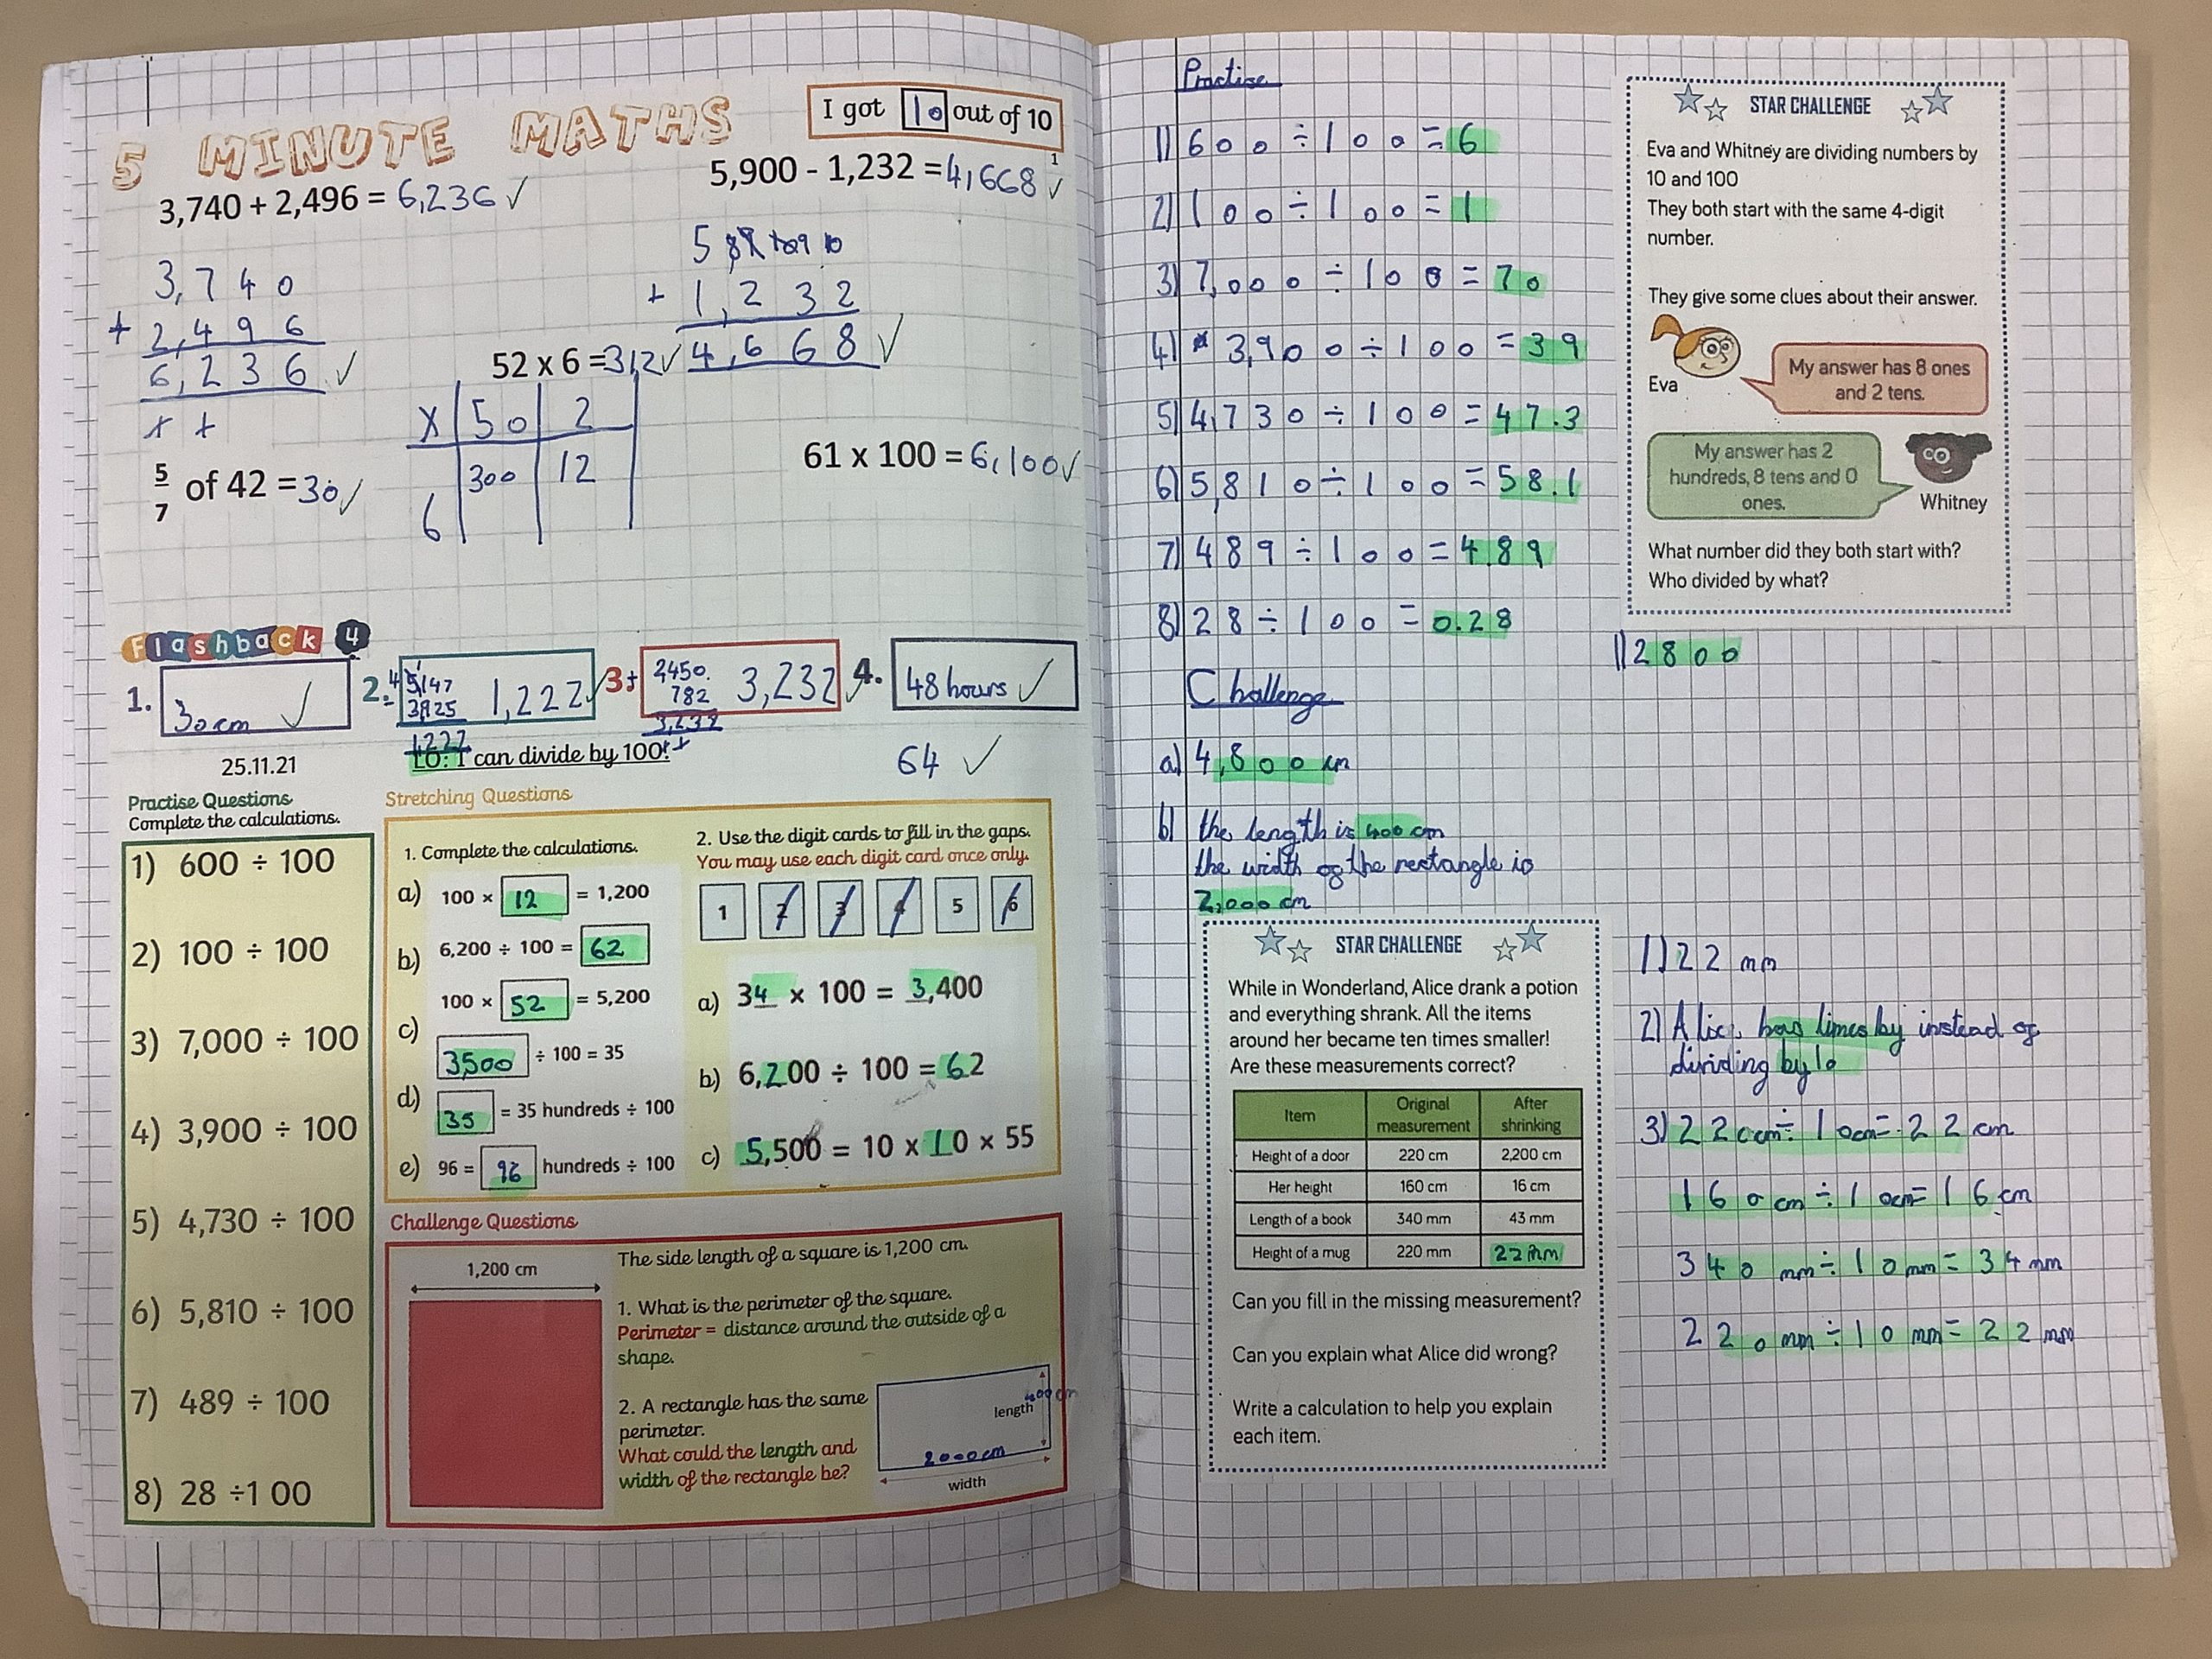 5 MINUTE MATHS
I got 10 out of 10
3,740 + 2,496 = 6,236 ✓
5,900 - 1,232 = 4,668 ✓
1
3,740
+ 2,496
6,236 ✓
+ 1,232
4,668 ✓
52 x 6 = 312 ✓
X | 50 | 2
6 | 300 | 12
5/7 of 42 = 30 ✓
61 x 100 = 6,100 ✓
Flashback 4
1. 30cm ✓
2. 1,222 ✓
3. 2450
+ 782
3,232
3,232 ✓
4. 48 hours ✓
25.11.21
LO: I can divide by 100!
64 ✓
Practise Questions
Complete the calculations.
1) 600 ÷ 100
2) 100 ÷ 100
3) 7,000 ÷ 100
4) 3,900 ÷ 100
5) 4,730 ÷ 100
6) 5,810 ÷ 100
7) 489 ÷ 100
8) 28 ÷1 00
Stretching Questions
1. Complete the calculations.
a) 100 × 12 = 1,200
b) 6,200 ÷ 100 = 62
100 × 52 = 5,200
c)
3500 ÷ 100 = 35
d)
35 = 35 hundreds ÷ 100
e) 96 = 96 hundreds ÷ 100
2. Use the digit cards to fill in the gaps.
You may use each digit card once only.
1 2 3 4 5 6
a) 34 × 100 = 3,400
b) 6,200 ÷ 100 = 62
c) 5,500 = 10 × 10 × 55
Challenge Questions
1,200 cm
The side length of a square is 1,200 cm.
1. What is the perimeter of the square.
Perimeter = distance around the outside of a
shape.
2. A rectangle has the same
perimeter.
What could the length and
width of the rectangle be?
400 cm
length
2000cm
width
Practise
1) 600 ÷ 100 = 6
2) 100 ÷ 100 = 1
3) 7,000 ÷ 100 = 70
4) 3,900 ÷ 100 = 39
5) 4,730 ÷ 100 = 47.3
6) 5,810 ÷ 100 = 58.1
7) 489 ÷ 100 = 4.89
8) 28 ÷ 100 = 0.28
Challenge
a) 4,800 cm
b) the length is 400 cm
the width of the rectangle is
2,000 cm
STAR CHALLENGE
Eva and Whitney are dividing numbers by
10 and 100
They both start with the same 4-digit
number.
They give some clues about their answer.
Eva
My answer has 8 ones
and 2 tens.
My answer has 2
hundreds, 8 tens and 0
ones.
Whitney
What number did they both start with?
Who divided by what?
1) 2800
STAR CHALLENGE
While in Wonderland, Alice drank a potion
and everything shrank. All the items
around her became ten times smaller!
Are these measurements correct?
Item | Original measurement | After shrinking
Height of a door | 220 cm | 2,200 cm
Her height | 160 cm | 16 cm
Length of a book | 340 mm | 43 mm
Height of a mug | 220 mm | 22mm
Can you fill in the missing measurement?
Can you explain what Alice did wrong?
Write a calculation to help you explain
each item.
1) 22 mm
2) Alice has times by instead of
dividing by 10
3) 220cm ÷ 10cm = 22 cm
160 cm ÷ 10cm = 16 cm
340 mm ÷ 10 mm = 34 mm
220 mm ÷ 10 mm = 22 mm